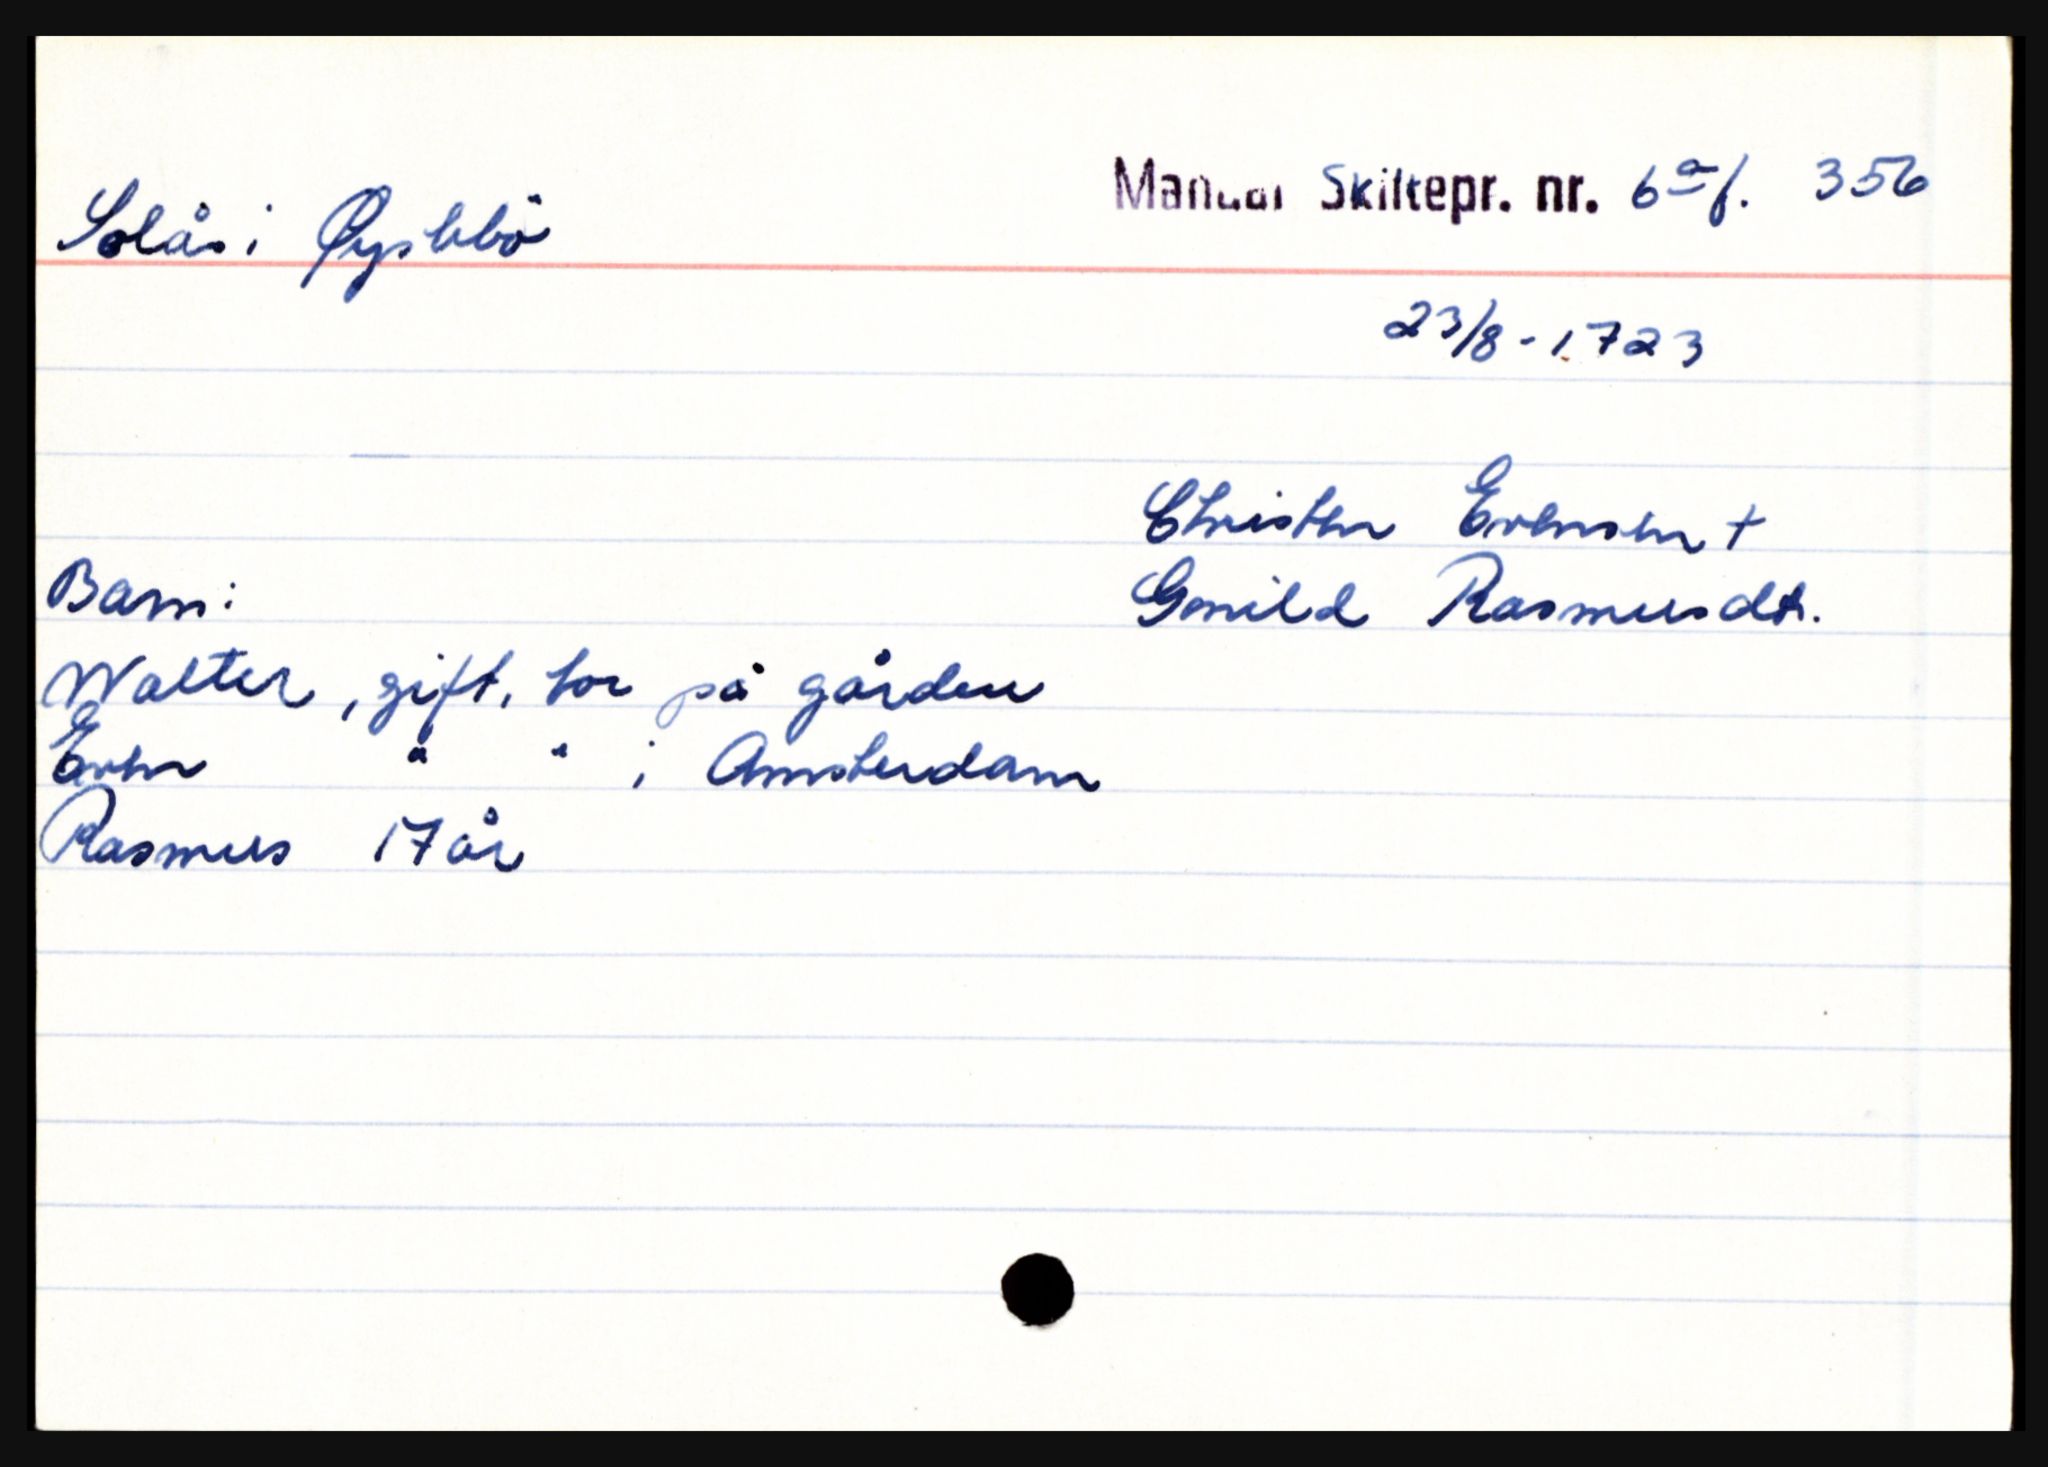 Mandal Skiftepr. nr. 6a f. 356
Solås i Øyslebö
23/8-1723
Christen Evensen +
Gonild Rasmusdtr.
Barn:
Walter, gift, bor på gården
Even " " i Amsterdam
Rasmus 17 år